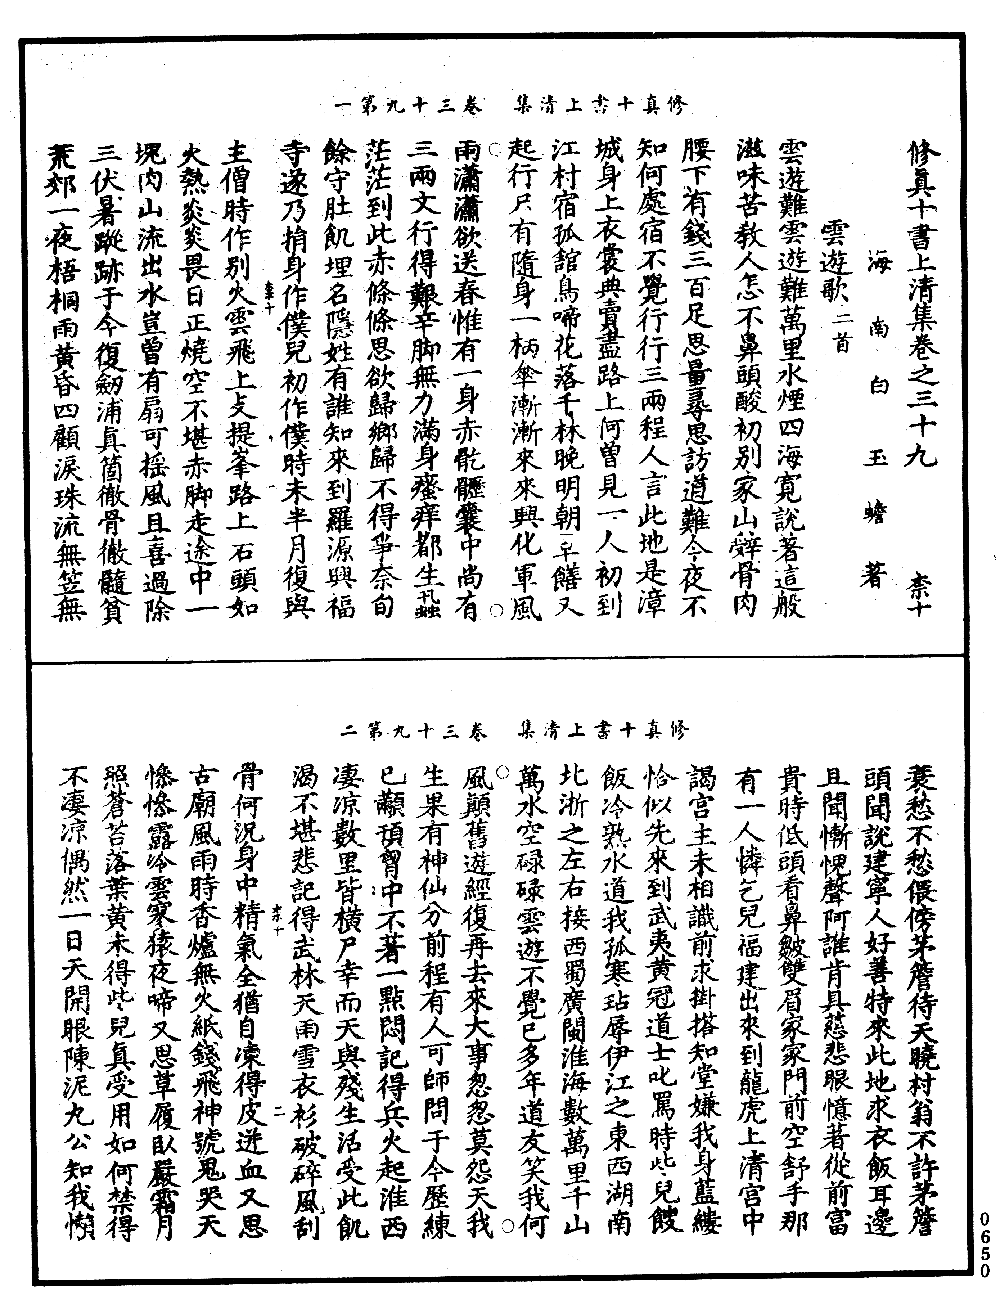 修真十書上清集　卷三十九第一
修真十書上清集卷之三十九　柰十
海南白玉蟾著
雲遊歌二首
雲遊難雲遊難萬里水煙四海寬說著這般
滋味苦教人怎不鼻頭酸初別家山辭骨肉
腰下有錢三百足思量尋思訪道難今夜不
知何處宿不覺行行三兩程人言此地是漳
城身上衣裳典賣盡路上何曾見一人初到
江村宿孤館鳥啼花落千林晚明朝早饍又
起行只有隨身一柄傘漸漸來來興化軍風
雨瀟瀟欲送春惟有一身赤骩𩪸囊中尚有
三兩文行得艱辛脚無力滿身瘙痒都生虱
茫茫到此赤條條思欲歸鄉歸不得爭奈旬
餘守肚飢埋名隱姓有誰知來到羅源興福
寺遂乃捐身作僕兒初作僕時未半月復與
柰十
主僧時作別火雲飛上支提峯路上石頭如
火熱炎炎畏日正燒空不堪赤脚走途中一
塊肉山流出水豈曾有扇可搖風且喜過除
三伏暑蹤跡于今復劒浦真箇徹骨徹髓貧
荒郊一夜梧桐雨黃昏四顧淚珠流無笠無
修真十書上清集　卷三十九第二
蓑愁不愁偎傍茅簷待天曉村翁不許茅簷
頭聞說建寧人好善特來此地求衣飯耳邊
且聞慚愧聲阿誰肯具慈悲眼憶著從前富
貴時低頭看鼻皺雙眉家家門前空舒手那
有一人憐乞兒福建出來到龍虎上清宮中
謁宮主未相識前求掛搭知堂嫌我身藍縷
恰似先來到武夷黃冠道士叱罵時些兒餿
飯冷熟水道我孤寒玷辱伊江之東西湖南
北浙之左右接西蜀廣閩淮海數萬里千山
萬水空碌碌雲遊不覺已多年道友笑我何
風顛舊遊經復再去來大事忽忽莫怨天我
生果有神仙分前程有人可師問于今歷練
已顢頇胷中不著一點悶記得兵火起淮西
淒涼數里皆橫尸幸而天與殘生活受此飢
渴不堪悲記得武林天雨雪衣衫破碎風刮
柰十　二
骨何況身中精氣全猶自凍得皮迸血又思
古廟風雨時香爐無火紙錢飛神號鬼哭天
慘慘露冷雲寒猿夜啼又思草履臥嚴霜月
照蒼苔落葉黃未得些兒真受用如何禁得
不淒涼偶然一日天開眼陳泥丸公知我懶
0650